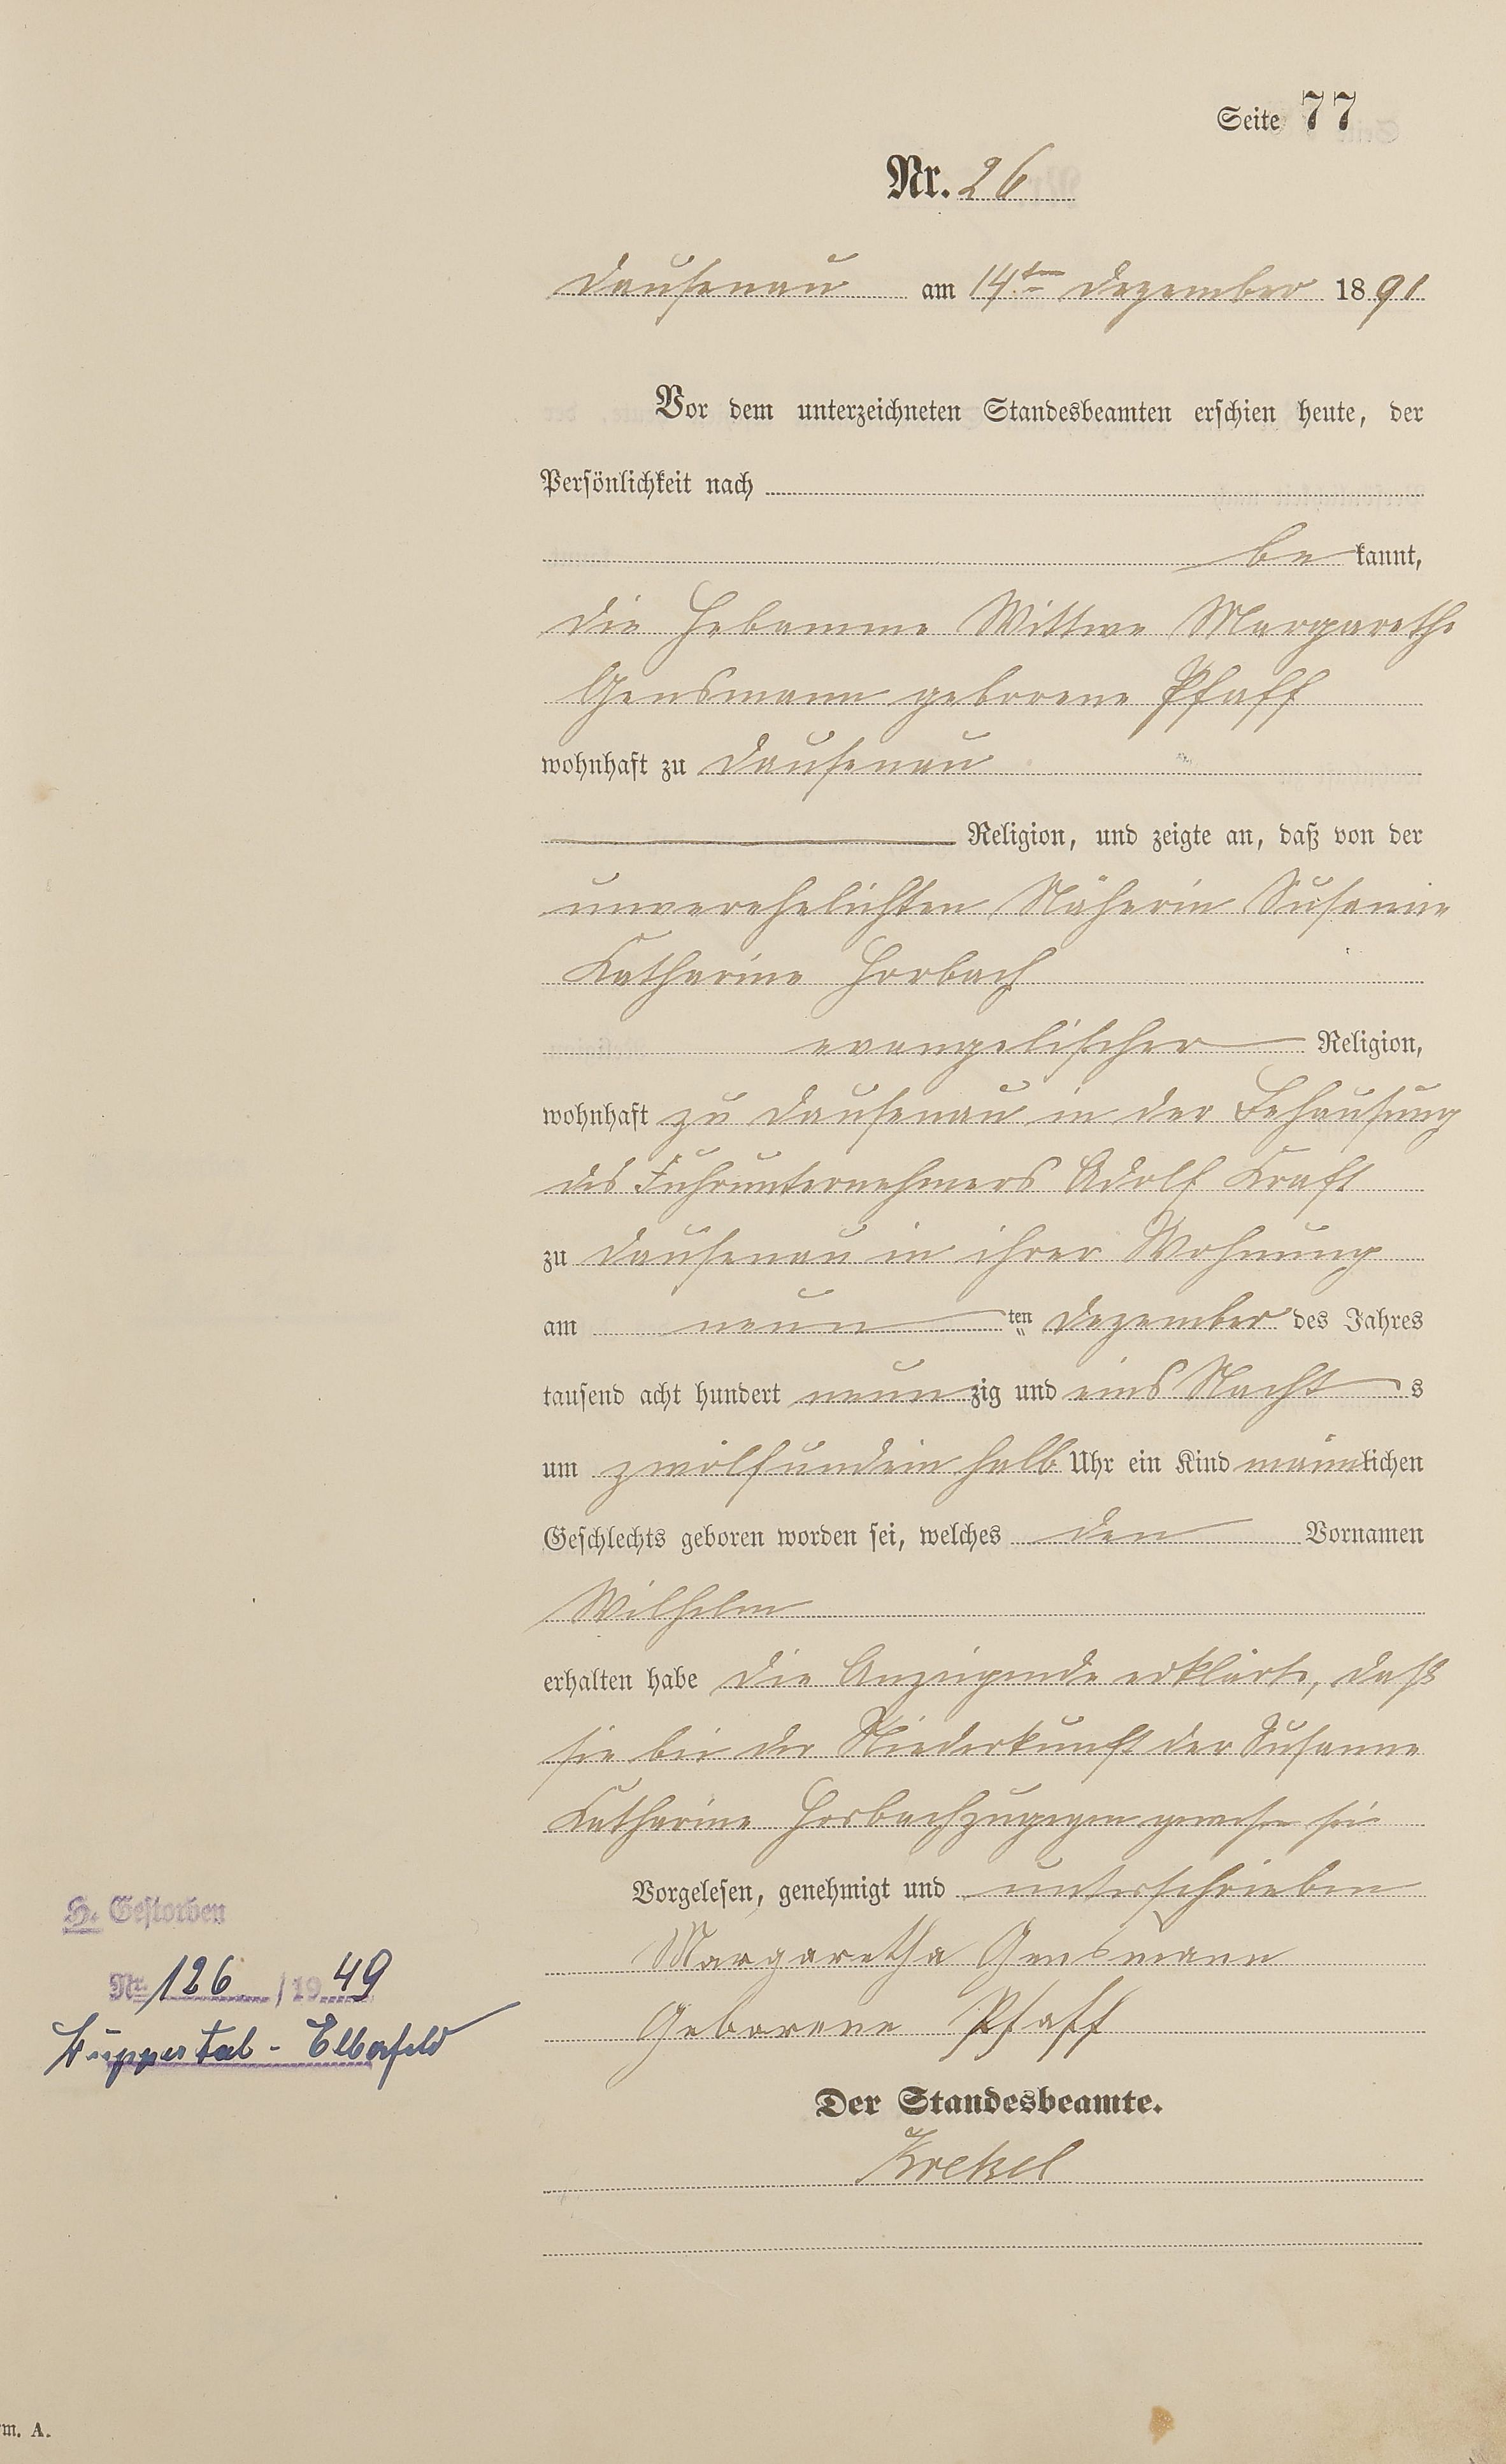 Seite 77
Nr. 26
Dausenau am 14ten Dezember 1891
Vor dem unterzeichneten Standesbeamten erschien heute, der
Persönlichkeit nach
be kannt,
die Hebamme Wittwe Margarethe
Gensmann geborene Pfaff
wohnhaft zu Dausenau
Religion, und zeigte an, daß von der
unverehelichten Näherin Susanne
Katharine Horbach
evangelischer Religion,
wohnhaft zu Dausenau in der Behausung
des Fuhrunternehmers Adolf Kraft
zu Dausenau in ihrer Wohnung
am neun ten Dezember des Jahres
tausend acht hundert neunzig und eins Nacht s
um zwölfundein halb Uhr ein Kind männlichen
Geschlechts geboren worden sei, welches den Vornamen
Wilhelm
erhalten habe die Anzeigende erklärte, daß
sie bei der Niederkunft der Susanne
Katharine Horbach zugegen gewesen sei
Vorgelesen, genehmigt und unterschrieben
Margaretha Gensmann
Geborene Pfaff
Der Standesbeamte.
Krekel
H. Gestorben
Nr. 126 / 1949
Wuppertal-Elberfeld
m. A.